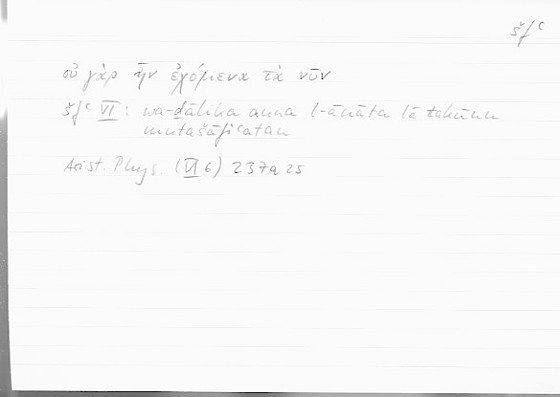 šfʿ
οὐ γὰρ ἦν ἐχόμενα τὰ νῦν
šfʿ VI: wa-ḏālika anna l-ānāta lā takūnu
mutašāfiʿatan
Arist. Phys. (VI 6) 237a25